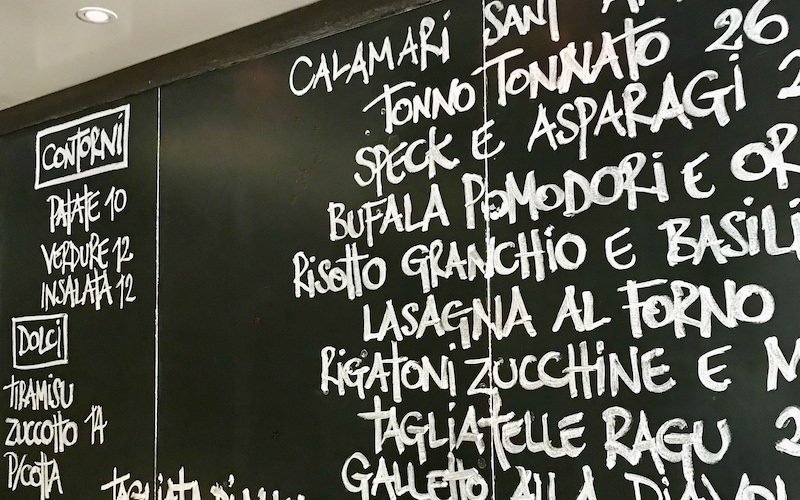 CONTORNI
PATATE 10
VERDURE 12
INSALATA 12
DOLCI
TIRAMISU
ZUCCOTTO 14
P/COTTA
CALAMARI SANT
TONNO TONNATO 26
SPECK E ASPARAGI 2
BUFALA POMODORI E OR
RISOTTO GRANCHIO E BASILI
LASAGNA AL FORNO
RIGATONI ZUCCHINE E M
TAGLIATELLE RAGU 2
GALLETTO ALLA DIAVOL
TAGLIATA DI